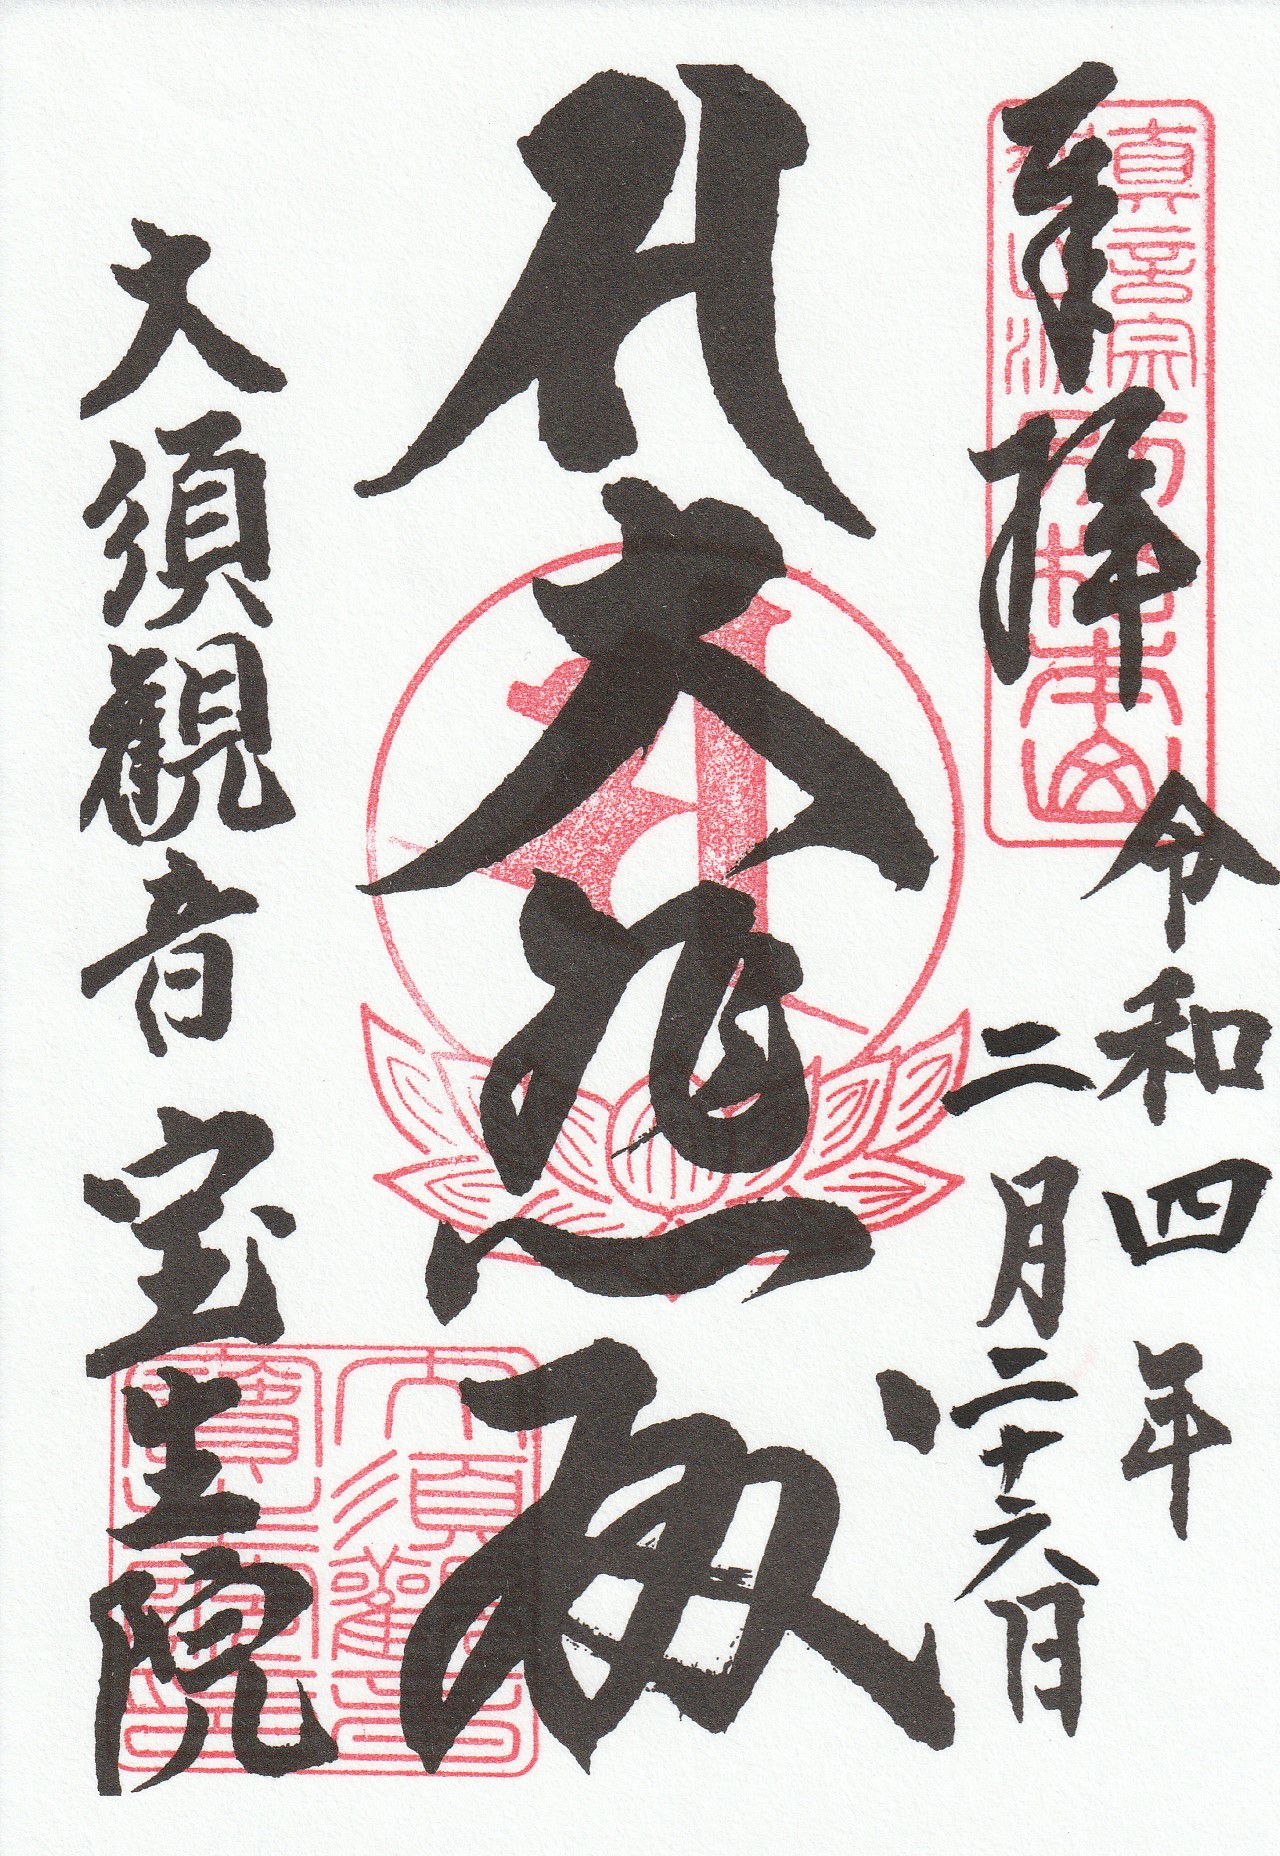 奉拝
令和四年
二月二十六日
大悲殿
大須観音 宝生院
真言宗
智山派
別格本山
大須観音寶生院